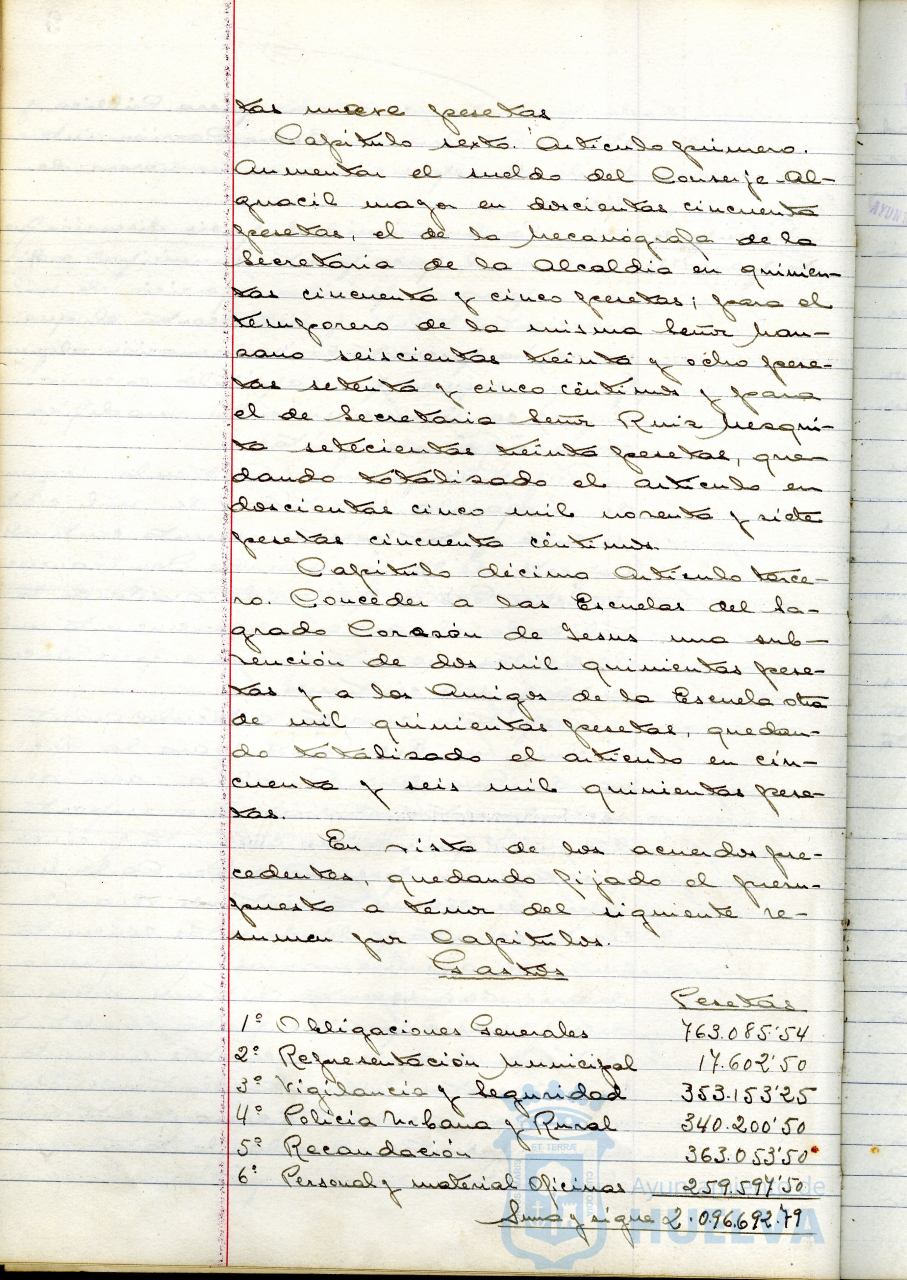 tas nueve pesetas
Capítulo sexto. Artículo primero.
Aumentar el sueldo del Conserje-Al-
guacil mayor en doscientas cincuenta
pesetas, el de la Mecanógrafa de la
Secretaria de la Alcaldia en quinien-
tas cincuenta y cinco pesetas; para el
temporero de la misma Señor Man-
zano seiscientas treinta y ocho pese-
tas setenta y cinco céntimos y para
el de Secretaria Señor Ruiz Mezqui-
ta setecientas treinta pesetas, que-
dando totalizado el artículo en
doscientas cinco mil noventa y siete
pesetas cincuenta céntimos.
Capítulo décimo Artículo terce-
ro. Conceder a las Escuelas del Sa-
grado Corazón de Jesus una sub-
vención de dos mil quinientas pese-
tas y a los Amigos de la Escuela otra
de mil quinientas pesetas, quedan-
do totalizado el artículo en cin-
cuenta y seis mil quinientas pese-
tas.
En vista de los acuerdos pre-
cedentes, quedando fijado el presu-
puesto a tenor del siguiente re-
sumen por Capítulos.
Gastos
Pesetas
1º Obligaciones Generales 763.085'54
2º Representación Municipal 17.602'50
3º Vigilancia y Seguridad 353.153'25
4º Policía Urbana y Rural 340.200'50
5º Recaudación 363.053'50
6º Personal y material Oficinas 259.597'50
Suma y sigue 2.096.692'79
ET TERRÆ
Ayuntamiento de
HUELVA